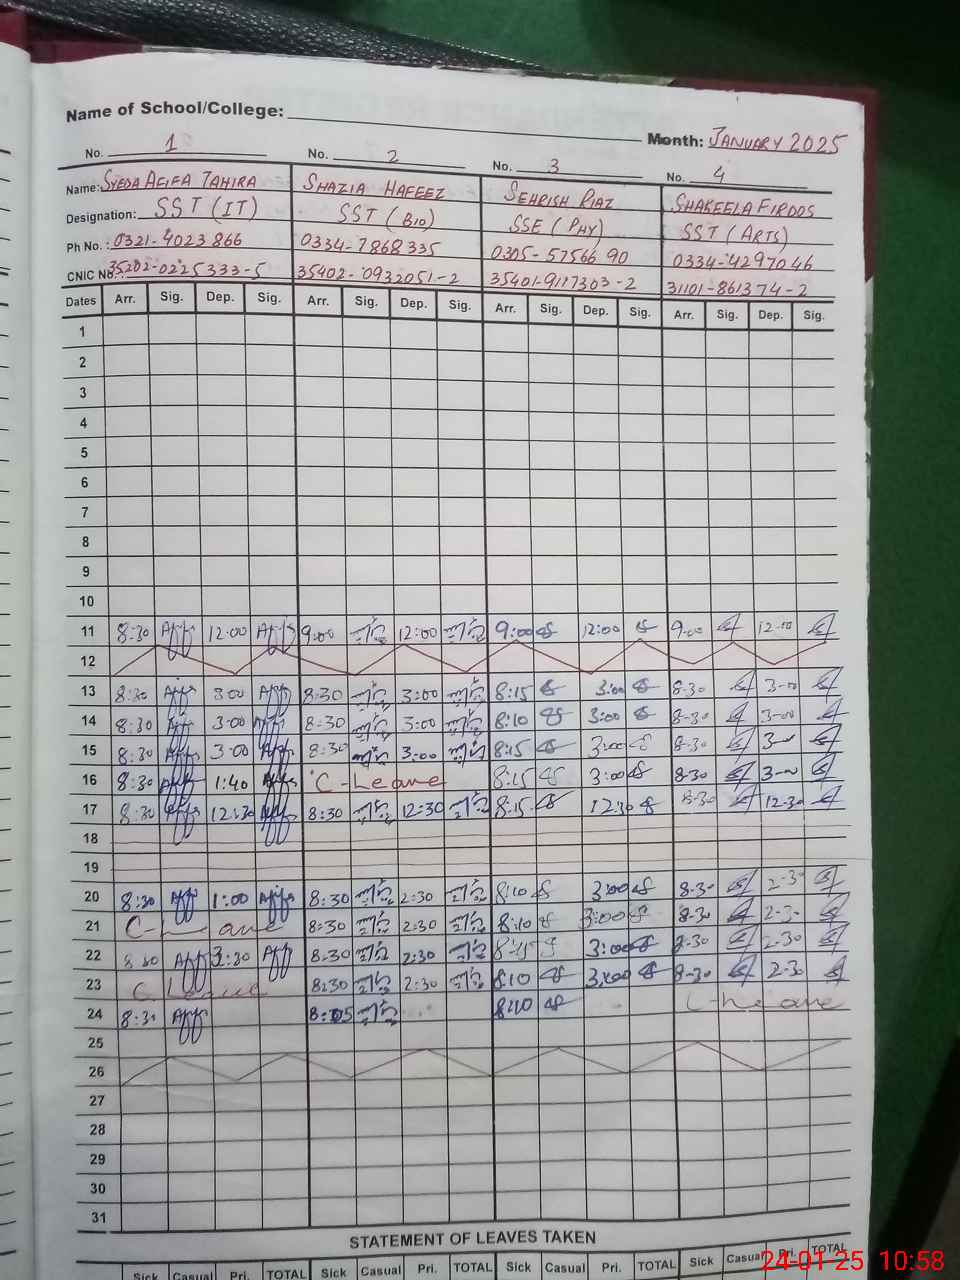 Name of School/College:
Month: JANUARY 2025
No. 1 No. 2 No. 3 No. 4
Name: SYEDA AFIFA TAHIRA SHAZIA HAFEEZ SEHRISH RIAZ SHAKEELA FIRDOS
Designation: SST (IT) SST (BIO) SSE (PHY) SST (ARTS)
Ph No.: 0321-4023866 0334-7868335 0305-5756690 0334-4297046
CNIC No. 35202-0225333-5 35402-0932051-2 35401-9117303-2 31101-861374-2
Dates Arr. Sig. Dep. Sig. Arr. Sig. Dep. Sig. Arr. Sig. Dep. Sig. Arr. Sig. Dep. Sig.
1
2
3
4
5
6
7
8
9
10
11 8:30 12:00 9:00 12:00 9:00 12:00 9:00 12:00
12
13 8:30 3:00 8:30 3:00 8:15 3:00 8-30 3-00
14 8:30 3-00 8-30 3:00 8:10 3:00 8-30 3-00
15 8:30 3-00 8:30 3:00 8:15 3:00 8-30
16 8:30 1:40 C-Leave 8:15 3:00 8-30 3-00
17 8:30 12:30 8:30 12:30 8:15 12:30 8-30 12-30
18
19
20 8:30 1:00 8:30 2:30 8:10 3:00 8-30 2-30
21 C-Leave 8:30 2:30 8:10 3:00 8-30 2-30
22 8:30 3:30 8-30 2:30 8:15 3:00 8-30 2-30
23 C Leave 8:30 2:30 8:10 3:00 8-30 2-30
24 8:31 8:05 8:10 C-Leave
25
26
27
28
29
30
31
STATEMENT OF LEAVES TAKEN
Sick Casual Pri. TOTAL Sick Casual Pri. TOTAL Sick Casual Pri. TOTAL Sick Casual Pri. TOTAL
24-01-25 10:58